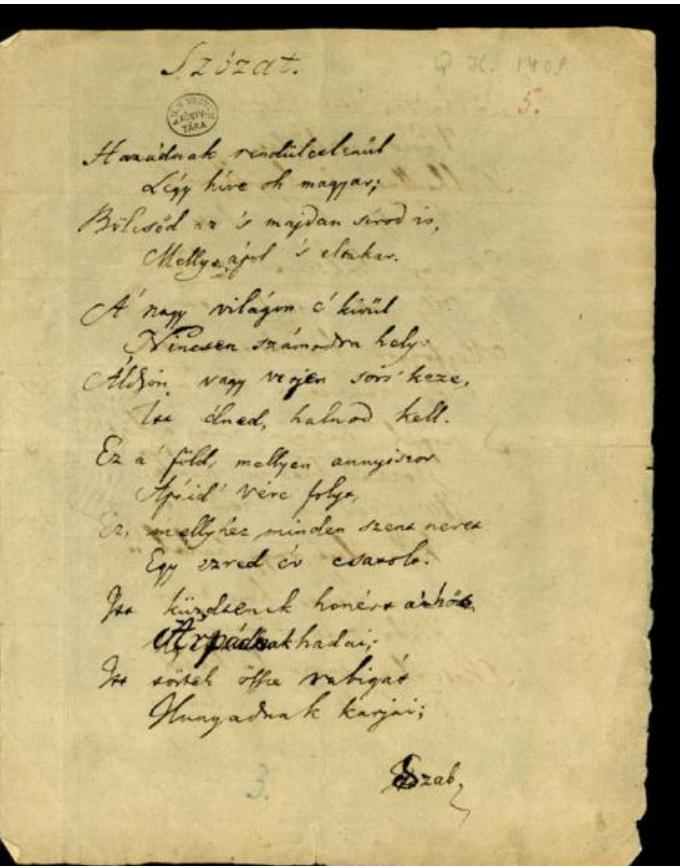 Szózat.
Q H. 1409
5.
M. N. MUZ.
KÖNYV-
TÁRA
Hazádnak rendületlenűl
Légy híve oh magyar;
Bölcsőd az 's majdan sírod is,
Melly ápol 's eltakar.
A' nagy világon e' kívűl
Nincsen számodra hely;
Áldjon vagy verjen sors' keze,
Itt élned, halnod kell.
Ez a' föld, mellyen annyiszor
Apáid' vére folyt,
Ez, mellyhez minden szent nevet
Egy ezred év csatolt.
Itt küzdtenek honért a' hős
Árpádnak hadai;
Itt törtek össze rabigát
Hunyadnak karjai;
Szab